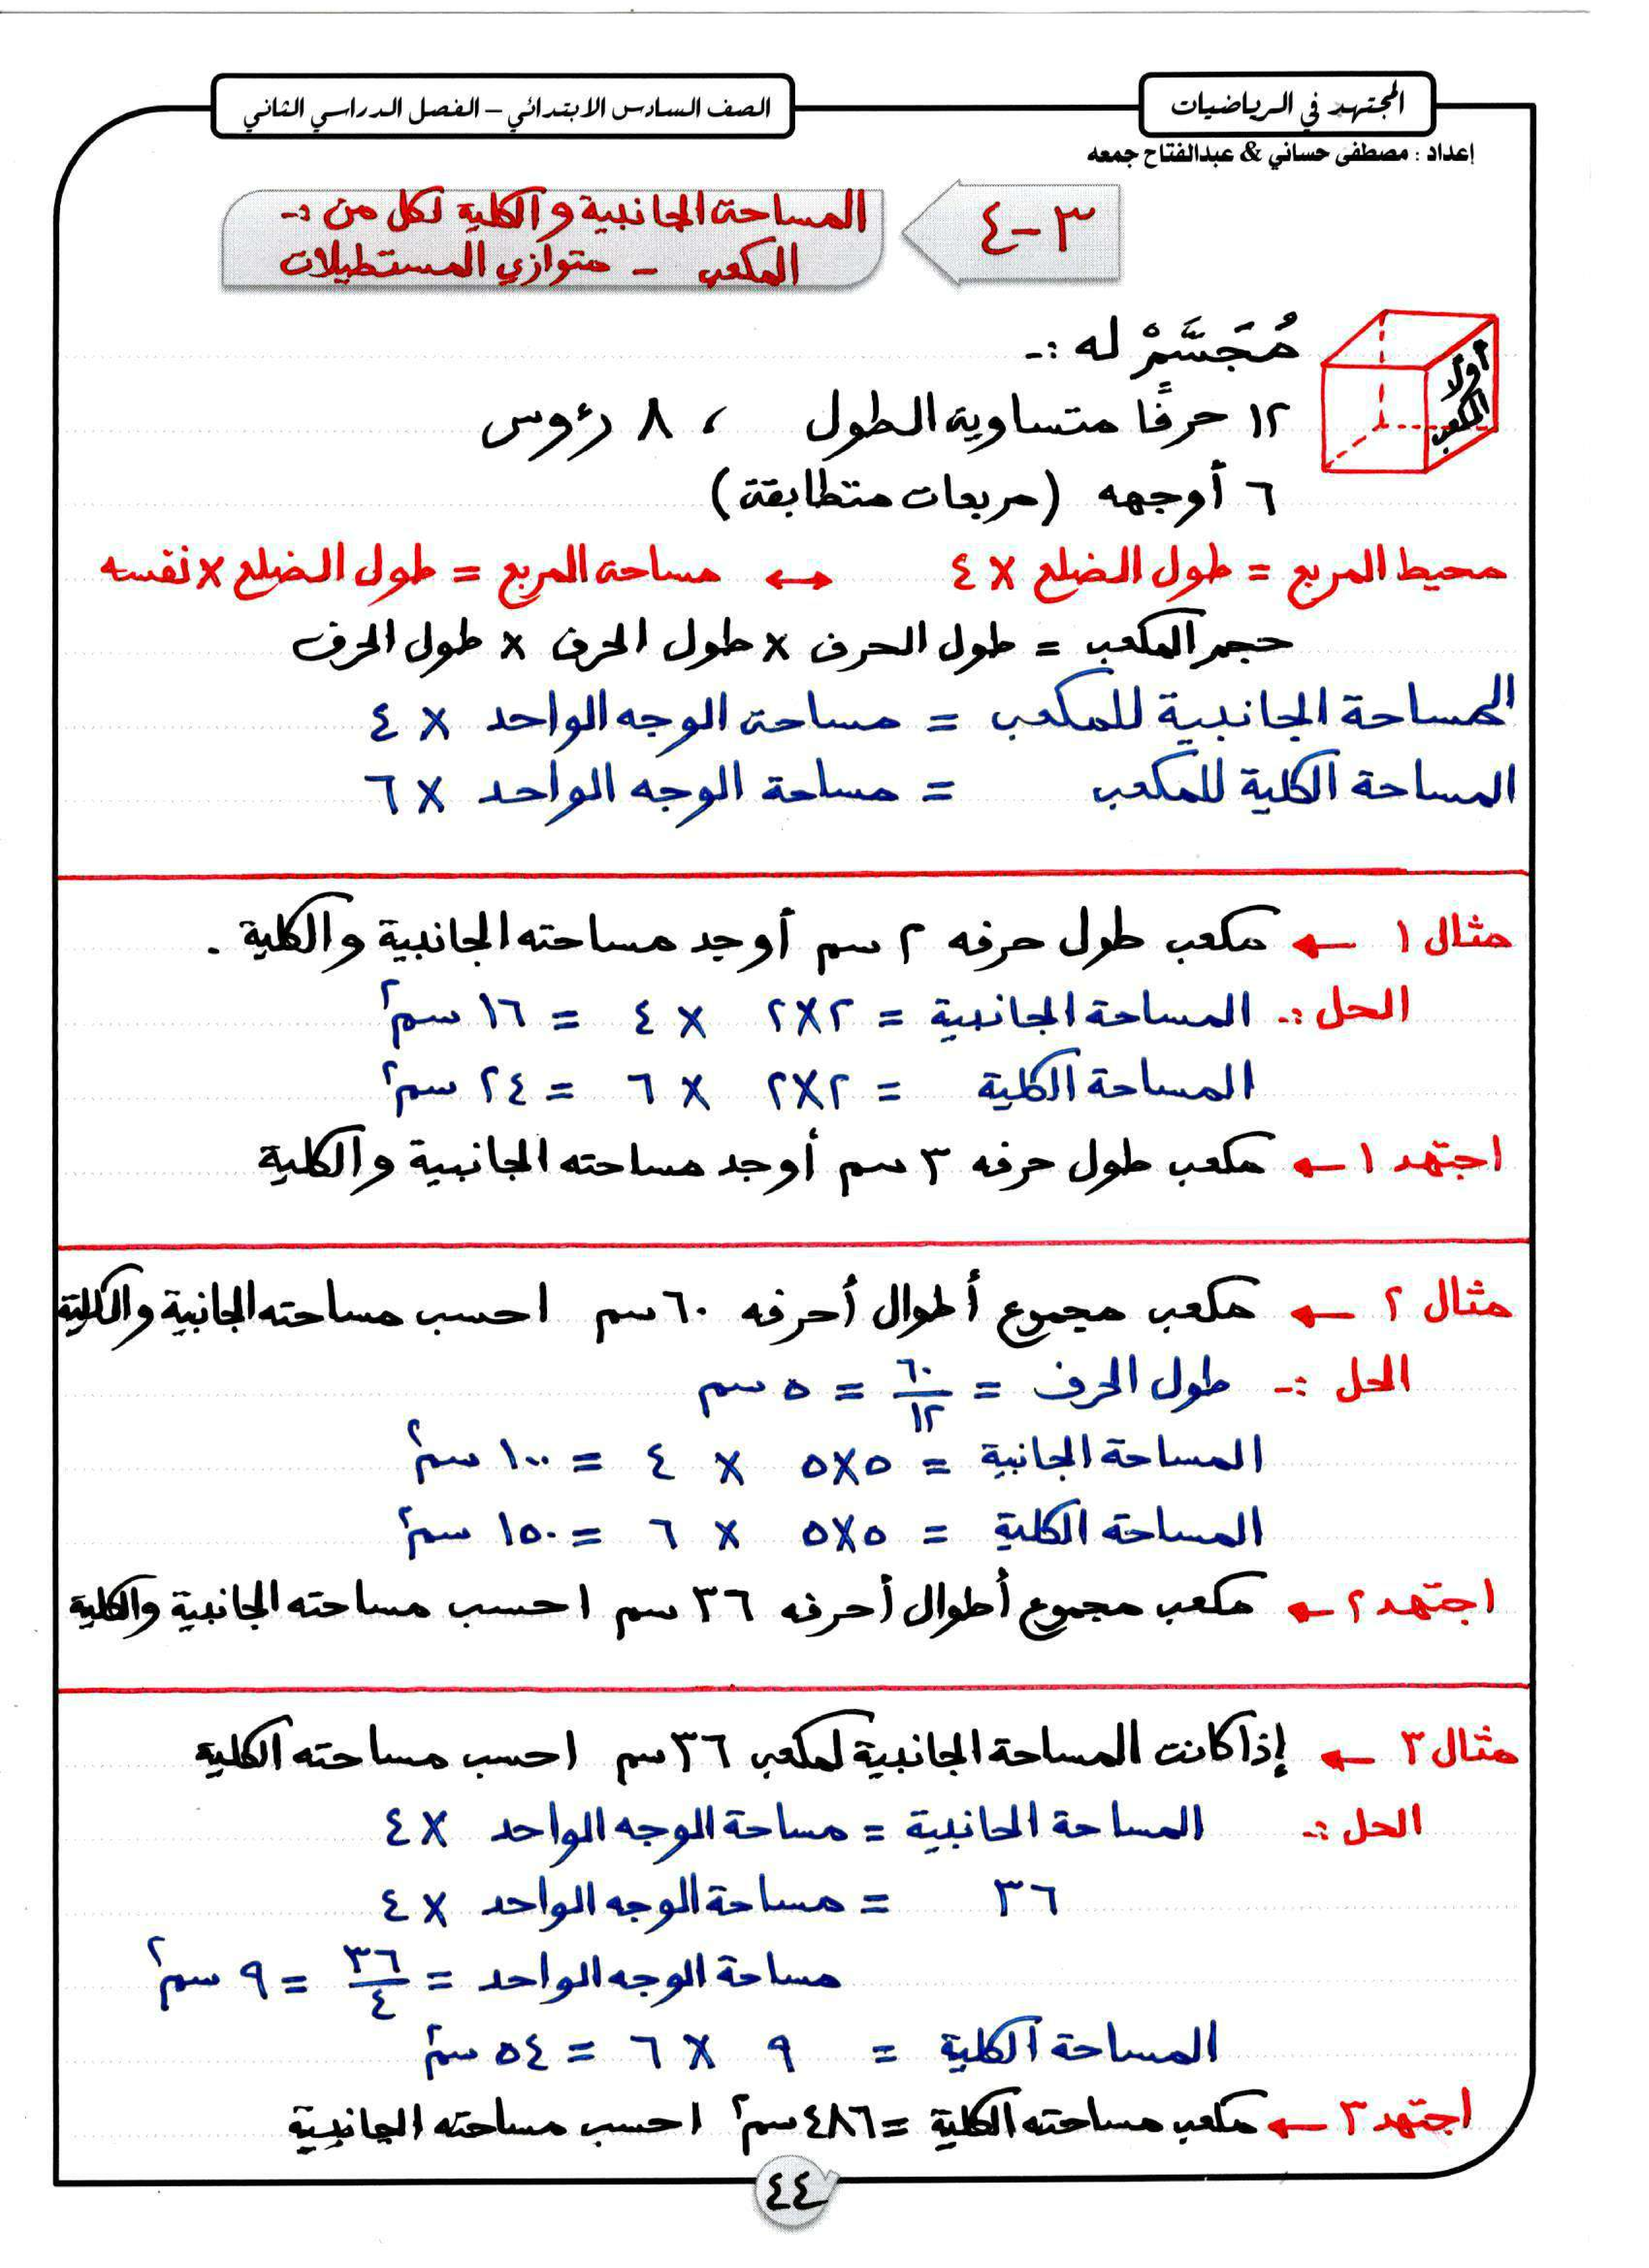 المجتهد في الرياضيات
الصف السادس الابتدائي – الفصل الدراسي الثاني
إعداد : مصطفى حساني & عبدالفتاح جمعه
٣-٤
المساحة الجانبية والكلية لكل من :-
المكعب - متوازي المستطيلات
أولا المكعب
مُجَسَّمْ له :-
١٢ حرفًا متساوية الطول ، ٨ رءوس
٦ أوجهه (مربعات متطابقة)
محيط المربع = طول الضلع × ٤ ↔ مساحة المربع = طول الضلع × نفسه
حجم المكعب = طول الحرف × طول الحرف × طول الحرف
المساحة الجانبية للمكعب = مساحة الوجه الواحد × ٤
المساحة الكلية للمكعب = مساحة الوجه الواحد × ٦
مثال ١ ← مكعب طول حرفه ٢ سم أوجد مساحته الجانبية والكلية .
الحل :- المساحة الجانبية = ٢×٢ × ٤ = ١٦ سم٢
المساحة الكلية = ٢×٢ × ٦ = ٢٤ سم٢
اجتهد ١ ← مكعب طول حرفه ٣ سم أوجد مساحته الجانبية والكلية
مثال ٢ ← مكعب مجموع أطوال أحرفه ٦٠ سم احسب مساحته الجانبية والكلية
الحل :- طول الحرف = ٦٠/١٢ = ٥ سم
المساحة الجانبية = ٥×٥ × ٤ = ١٠٠ سم٢
المساحة الكلية = ٥×٥ × ٦ = ١٥٠ سم٢
اجتهد ٢ ← مكعب مجموع أطوال أحرفه ٣٦ سم احسب مساحته الجانبية والكلية
مثال ٣ ← إذا كانت المساحة الجانبية لمكعب ٣٦ سم احسب مساحته الكلية
الحل :- المساحة الجانبية = مساحة الوجه الواحد × ٤
٣٦ = مساحة الوجه الواحد × ٤
مساحة الوجه الواحد = ٣٦/٤ = ٩ سم٢
المساحة الكلية = ٩ × ٦ = ٥٤ سم٢
اجتهد ٣ ← مكعب مساحته الكلية = ٤٨٦ سم٢ احسب مساحته الجانبية
٤٤